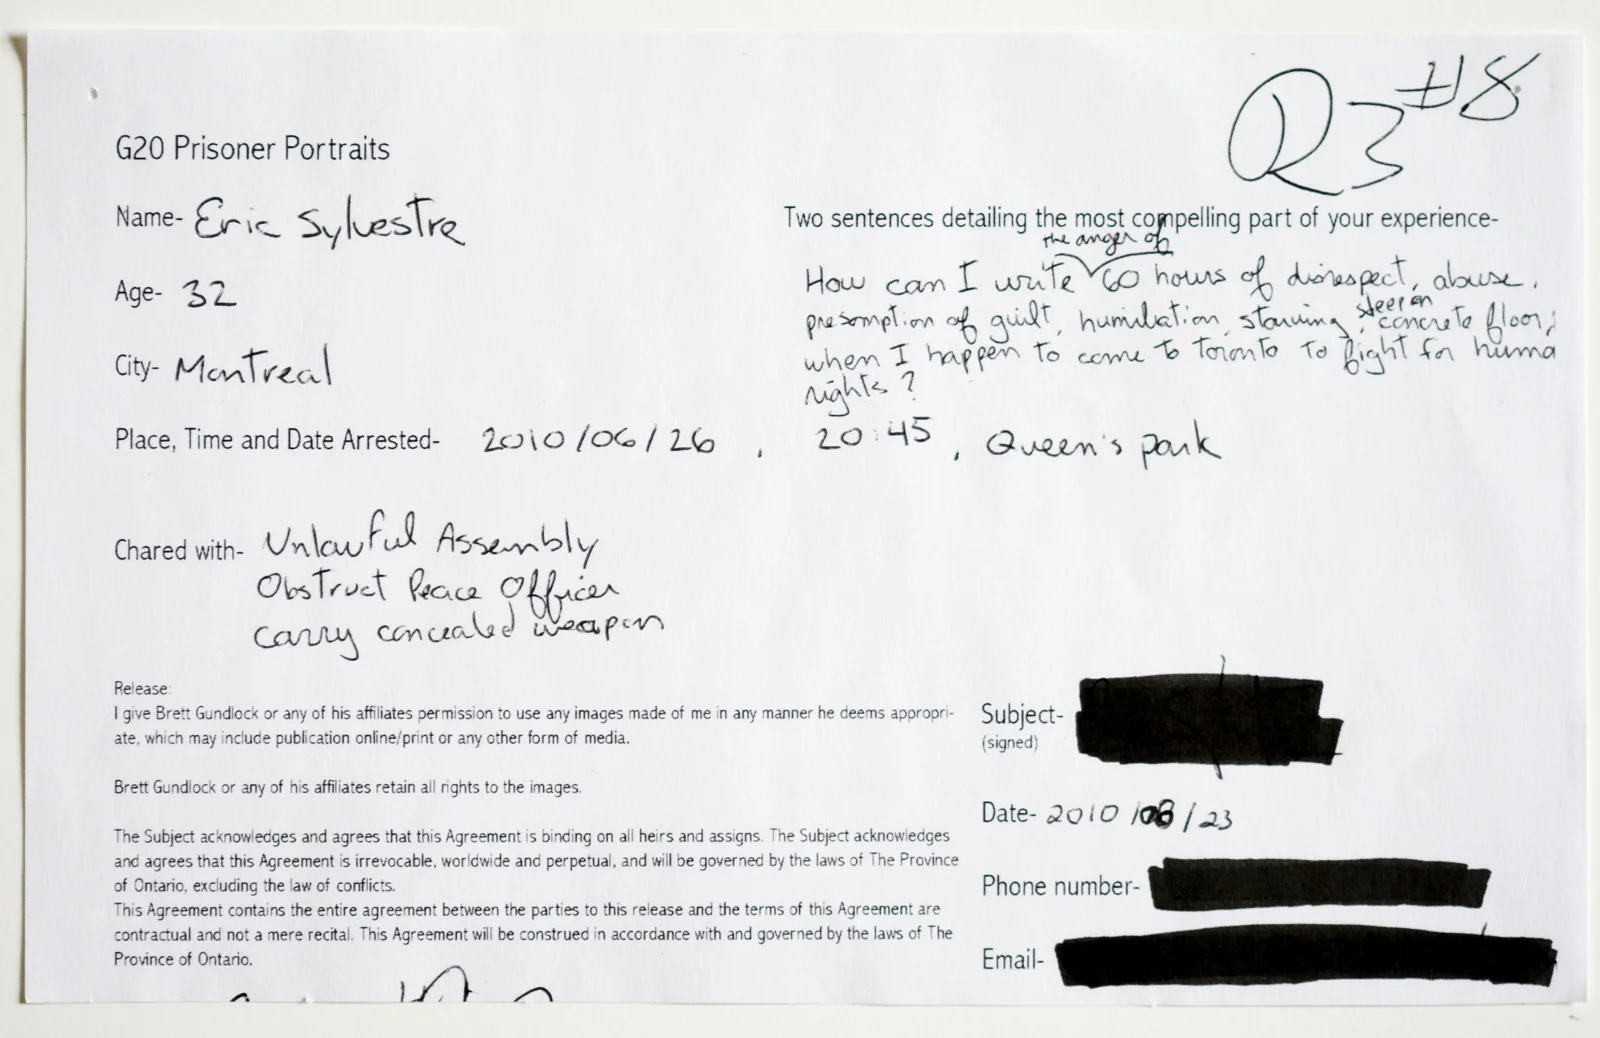 R3 #8
G20 Prisoner Portraits
Name- Eric Sylvestre
Age- 32
City- Montreal
Two sentences detailing the most compelling part of your experience-
the anger of
How can I write 60 hours of disrespect, abuse,
presomption of guilt, humiliation, starving, sleep on concrete floor,
when I happen to come to Toronto to fight for huma
rights?
Place, Time and Date Arrested- 2010/06/26, 20:45, Queen's park
Chared with- Unlawful Assembly
Obstruct Peace Officer
Carry concealed weapon
Release:
I give Brett Gundlock or any of his affiliates permission to use any images made of me in any manner he deems appropri-
ate, which may include publication online/print or any other form of media.
Brett Gundlock or any of his affiliates retain all rights to the images.
The Subject acknowledges and agrees that this Agreement is binding on all heirs and assigns. The Subject acknowledges
and agrees that this Agreement is irrevocable, worldwide and perpetual, and will be governed by the laws of The Province
of Ontario, excluding the law of conflicts.
This Agreement contains the entire agreement between the parties to this release and the terms of this Agreement are
contractual and not a mere recital. This Agreement will be construed in accordance with and governed by the laws of The
Province of Ontario.
Subject-
(signed)
Date- 2010/08/23
Phone number-
Email-